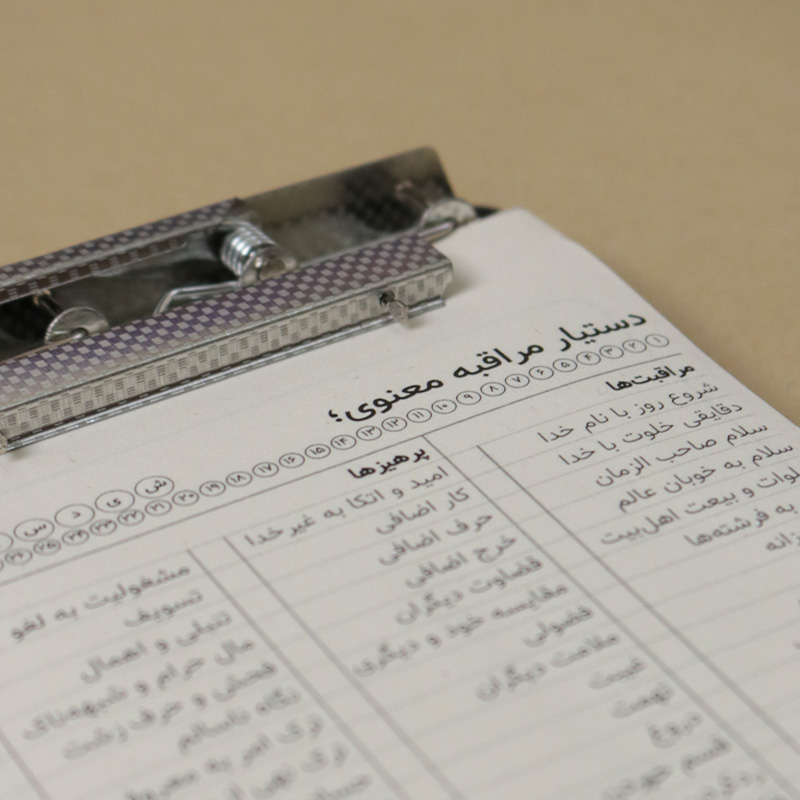 دستیار مراقبه معنوی؛
۱ ۲ ۳ ۴ ۵ ۶ ۷ ۸ ۹ ۱۰ ۱۱ ۱۲ ۱۳ ۱۴ ۱۵ ۱۶ ۱۷ ۱۸ ۱۹ ۲۰ ۲۱ ۲۲ ۲۳ ۲۴ ۲۵ ۲۶
ش ی د س
مراقبت‌ها
شروع روز با نام خدا
دقایقی خلوت با خدا
سلام صاحب الزمان
سلام به خوبان عالم
و بیعت اهل‌بیت
به فرشته‌ها
پرهیزها
امید و اتکا به غیر خدا
کار اضافی
حرف اضافی
خرج اضافی
قضاوت دیگران
مقایسه خود و دیگری
فضولی
ملامت دیگران
غیبت
تهمت
دروغ
قسم خوردن
مشغولیت به لغو
تسویف
تنبلی و اهمال
مال حرام و شبهه‌ناک
فحش و حرف زشت
نگاه ناسالم
ترک امر به معروف
ترک نهی از